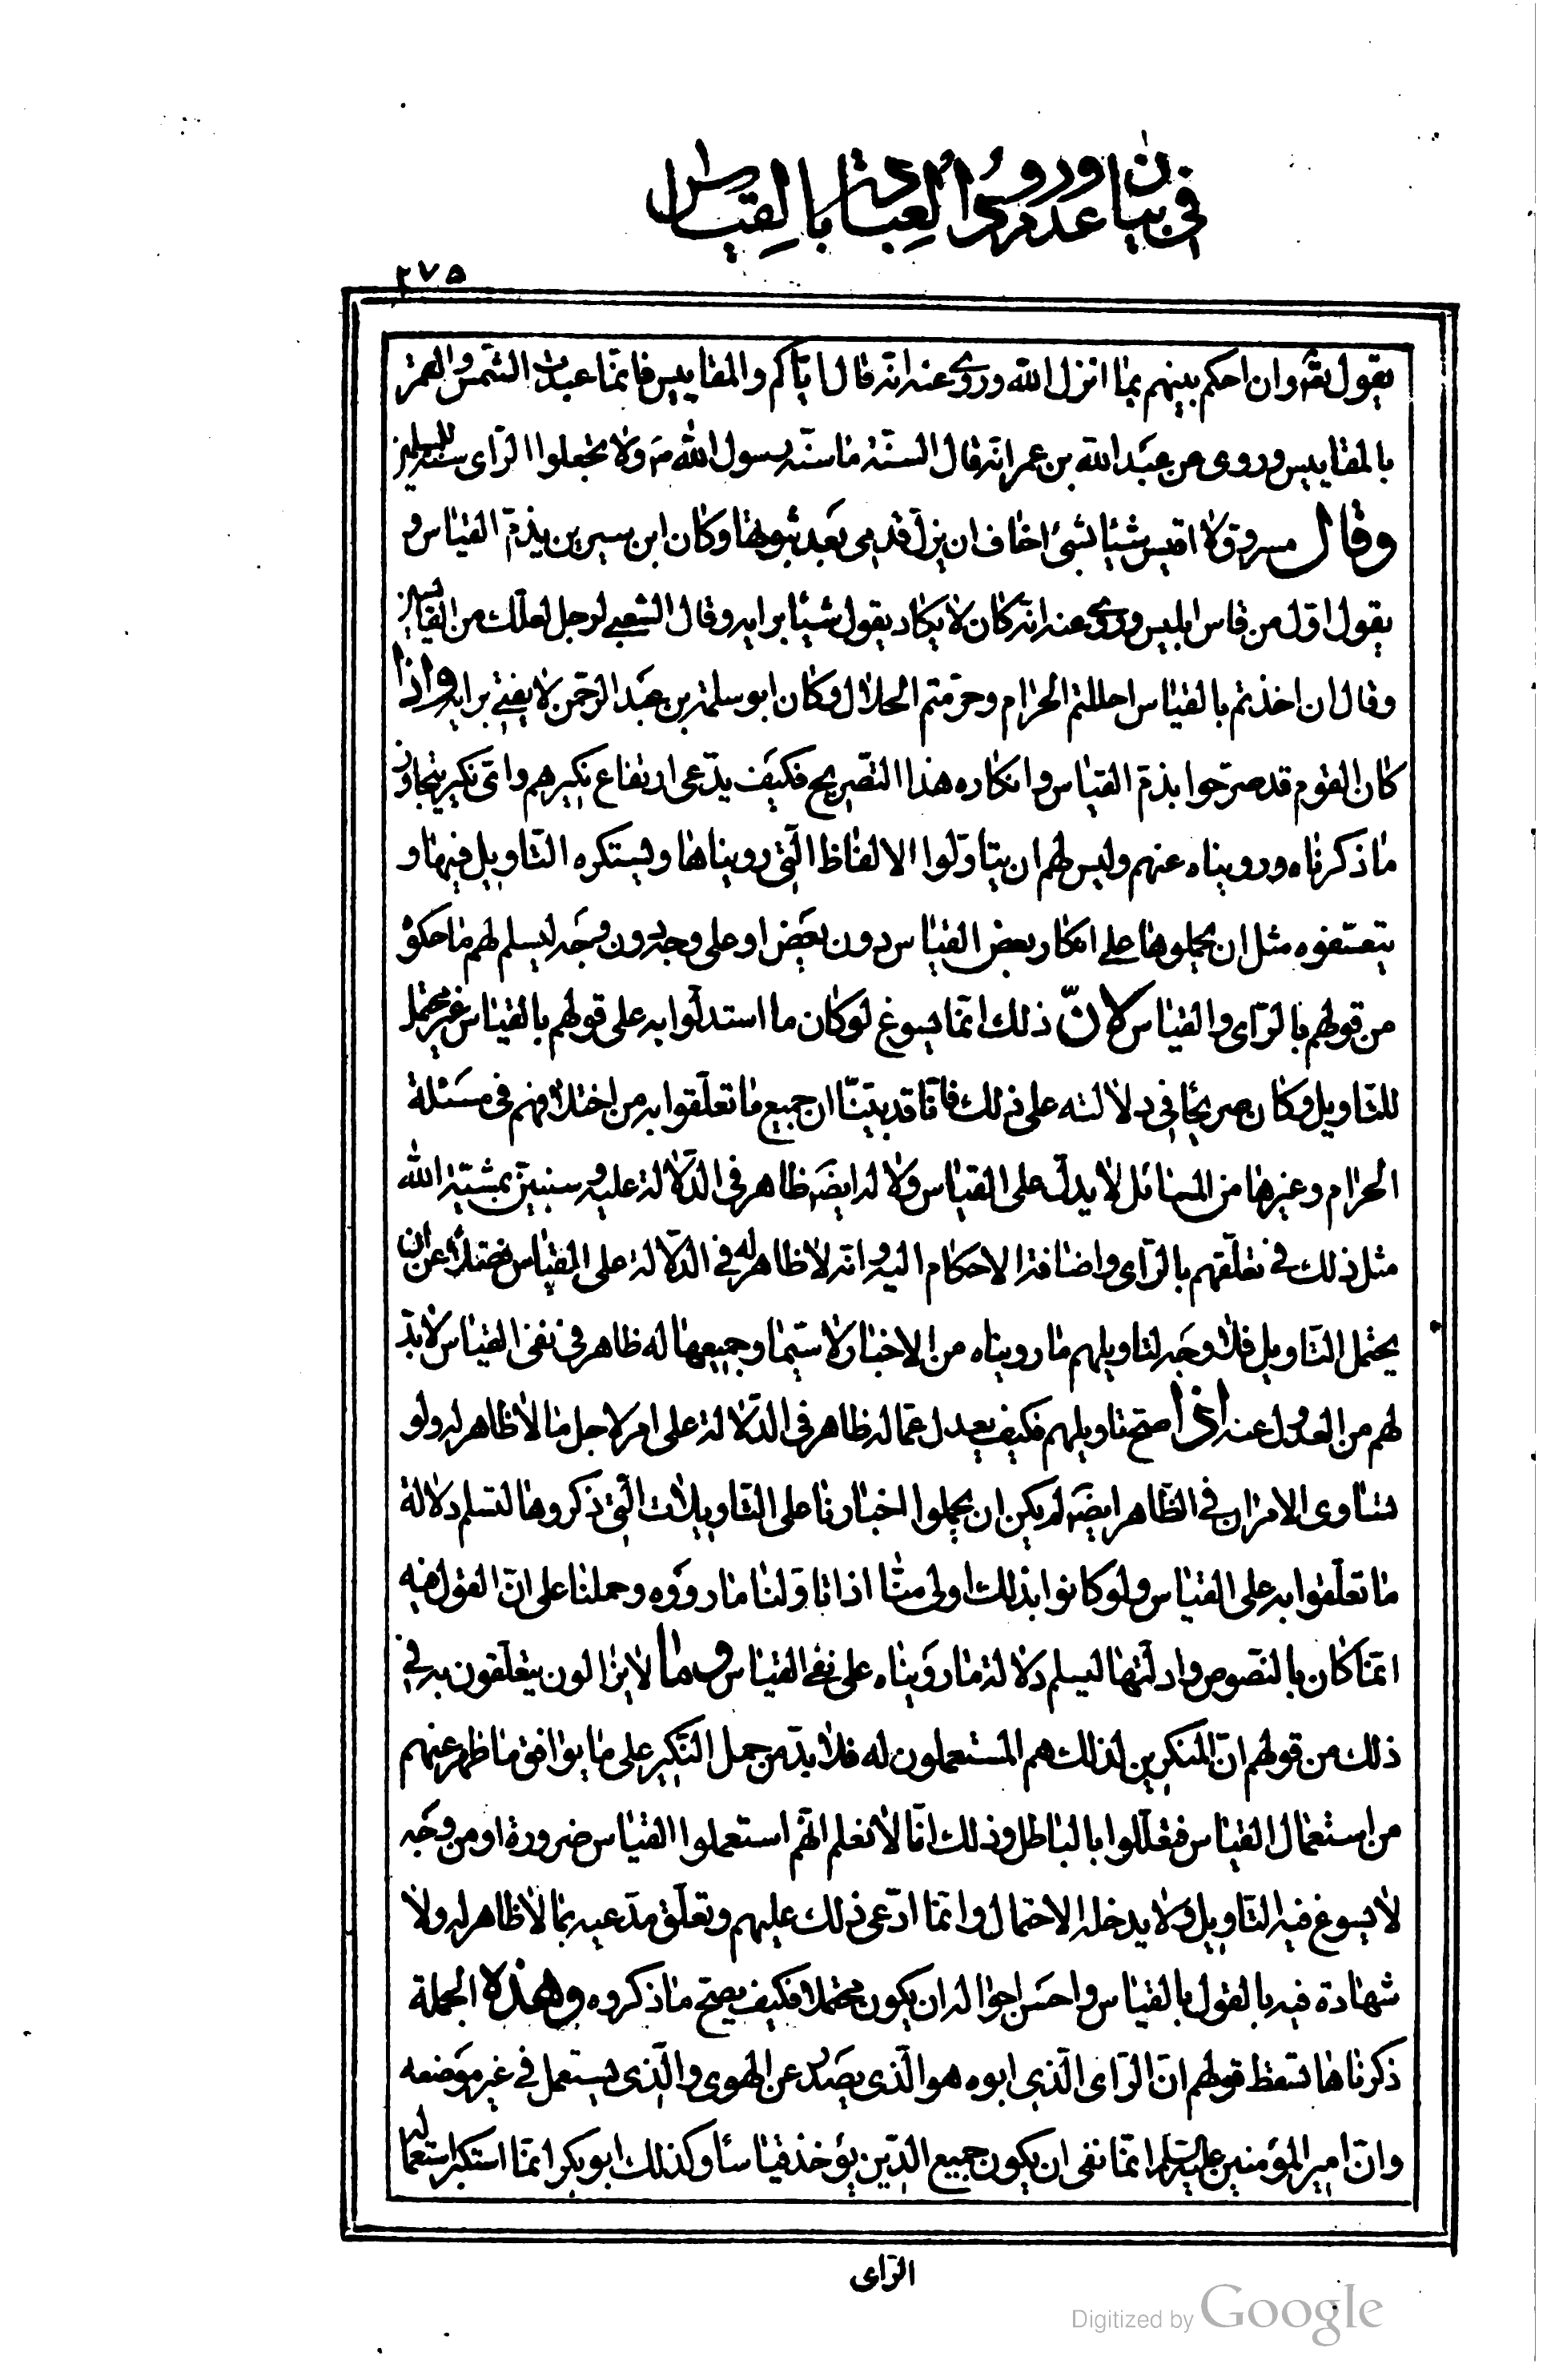 في بيان عدم ورود العبادة بالقياس
٢٧٥
يقول تعالى وان احكم بينهم بما انزل الله وروى عنه انه قال اياكم والمقاييس فانما عبدت الشمس والقمر
بالمقاييس وروى عن عبد الله بن عمر انه قال السنة ما سنه رسول الله ص ولا تجعلوا الرّاى سنة للمسلمين
وقال مسروق لا اقيس شيئا بشئ اخاف ان يزل قدمى بعد ثبوتها وكان ابن سيرين يذمّ القياس و
يقول اوّل من قاس ابليس وروى عنه انه كان لا يكاد يقول شيئا برايه وقال الشعبي لرجل لعلك من القايسين
وقال ان اخذتم بالقياس احللتم الحرام وحرّمتم الحلال وكان ابو سلمة بن عبد الرحمن لا يفتى برايه واذا
كان القوم قد صرّحوا بذمّ القياس وانكاره هذا التصريح فكيف يدّعى ارتفاع نكيرهم واىّ نكير يتجاوز
ما ذكرناه ورويناه عنهم وليس لهم ان يتاوّلوا الالفاظ الّتى رويناها ويستكره التّاويل فيها و
يتعسّفوه مثل ان يحملوها على انكار بعض القياس دون بعض او على وجه دون وجه ليسلم لهم ما حكوه
من قولهم بالرّاى والقياس لانّ ذلك انّما يسوغ لو كان ما استدلّوا به على قولهم بالقياس غير محتمل
للتّاويل وكان صريحا في دلالته على ذلك فانّا قد بيّنّا ان جميع ما تعلّقوا به من اختلافهم فى مسئلة
الحرام وغيرها من المسائل لا يدلّ على القياس ولا له ايضا ظاهر في الدّلالة عليه وسنبيّن بمشيّة الله
مثل ذلك فى تعلّقهم بالرّاى واضافة الاحكام اليه وانه لا ظاهر له فى الدلالة على القياس فضلا عن ان
يحتمل التّاويل فلا وجه لتاويلهم ما رويناه من الاخبار لا سيّما وجميعها له ظاهر فى نفى القياس لا بدّ
لهم من العدول عنه اذا صحّ تاويلهم فكيف يعدل عمّا له ظاهر فى الدّلالة على امر لاجل ما لا ظاهر له ولو
تساوى الامران فى الظّاهر ايضا لم يكن ان يحملوا اخبارنا على التّاويلات الّتى ذكروها لتسلم دلالة
ما تعلّقوا به على القياس ولو كانوا بذلك اولى منّا اذا تاوّلنا ما رووه وحملنا على انّ القول فيه
انّما كان بالنّصوص وادلّتها ليسلم دلالة ما رويناه على نفى القياس وما لا يزالون يتعلّقون به فى
ذلك من قولهم انّ المنكرين لذلك هم المستعملون له فلا بدّ من حمل النّكير على ما يوافق ما ظهر عنهم
من استعمال القياس فتعلّلوا بالباطل وذلك انّا لا نعلم انّهم استعملوا القياس ضرورة او من وجه
لا يسوغ فيه التّاويل ولا يدخله الاحتمال وانّما ادّعى ذلك عليهم وتعلّق مدّعيه بما لا ظاهر له ولا
شهادة فيه بالقول بالقياس واحسن احواله ان يكون محتملا فكيف يصحّ ما ذكروه وهذه الجملة
ذكرناها تسقط قولهم انّ الرّاى الّذى ابوه هو الّذى يصدر عن الهوى والّذى يستعمل فى غير موضعه
وانّ امير المؤمنين عليه السّلم انّما نفى ان يكون جميع الدّين يؤخذ قياسا وكذلك ابو بكر انّما استكبر استعماله
الرّاى
Digitized by Google